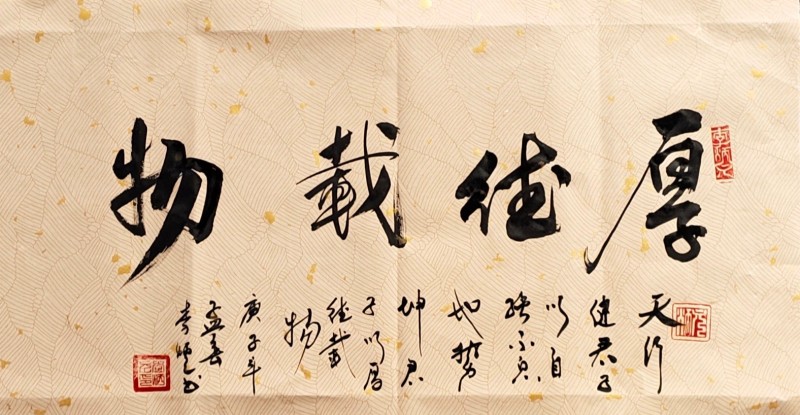 厚德載物
天行
健君子
以自
强不息
地勢
坤君
子以厚
德載
物
庚子年
孟春